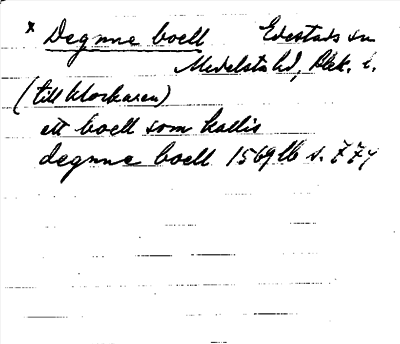 x Degnne boell Edestads sn
Medelsta hd, Blek. l.
(till klockaren)
ett boell som kallis
degnne boell 1569 lb s. 774